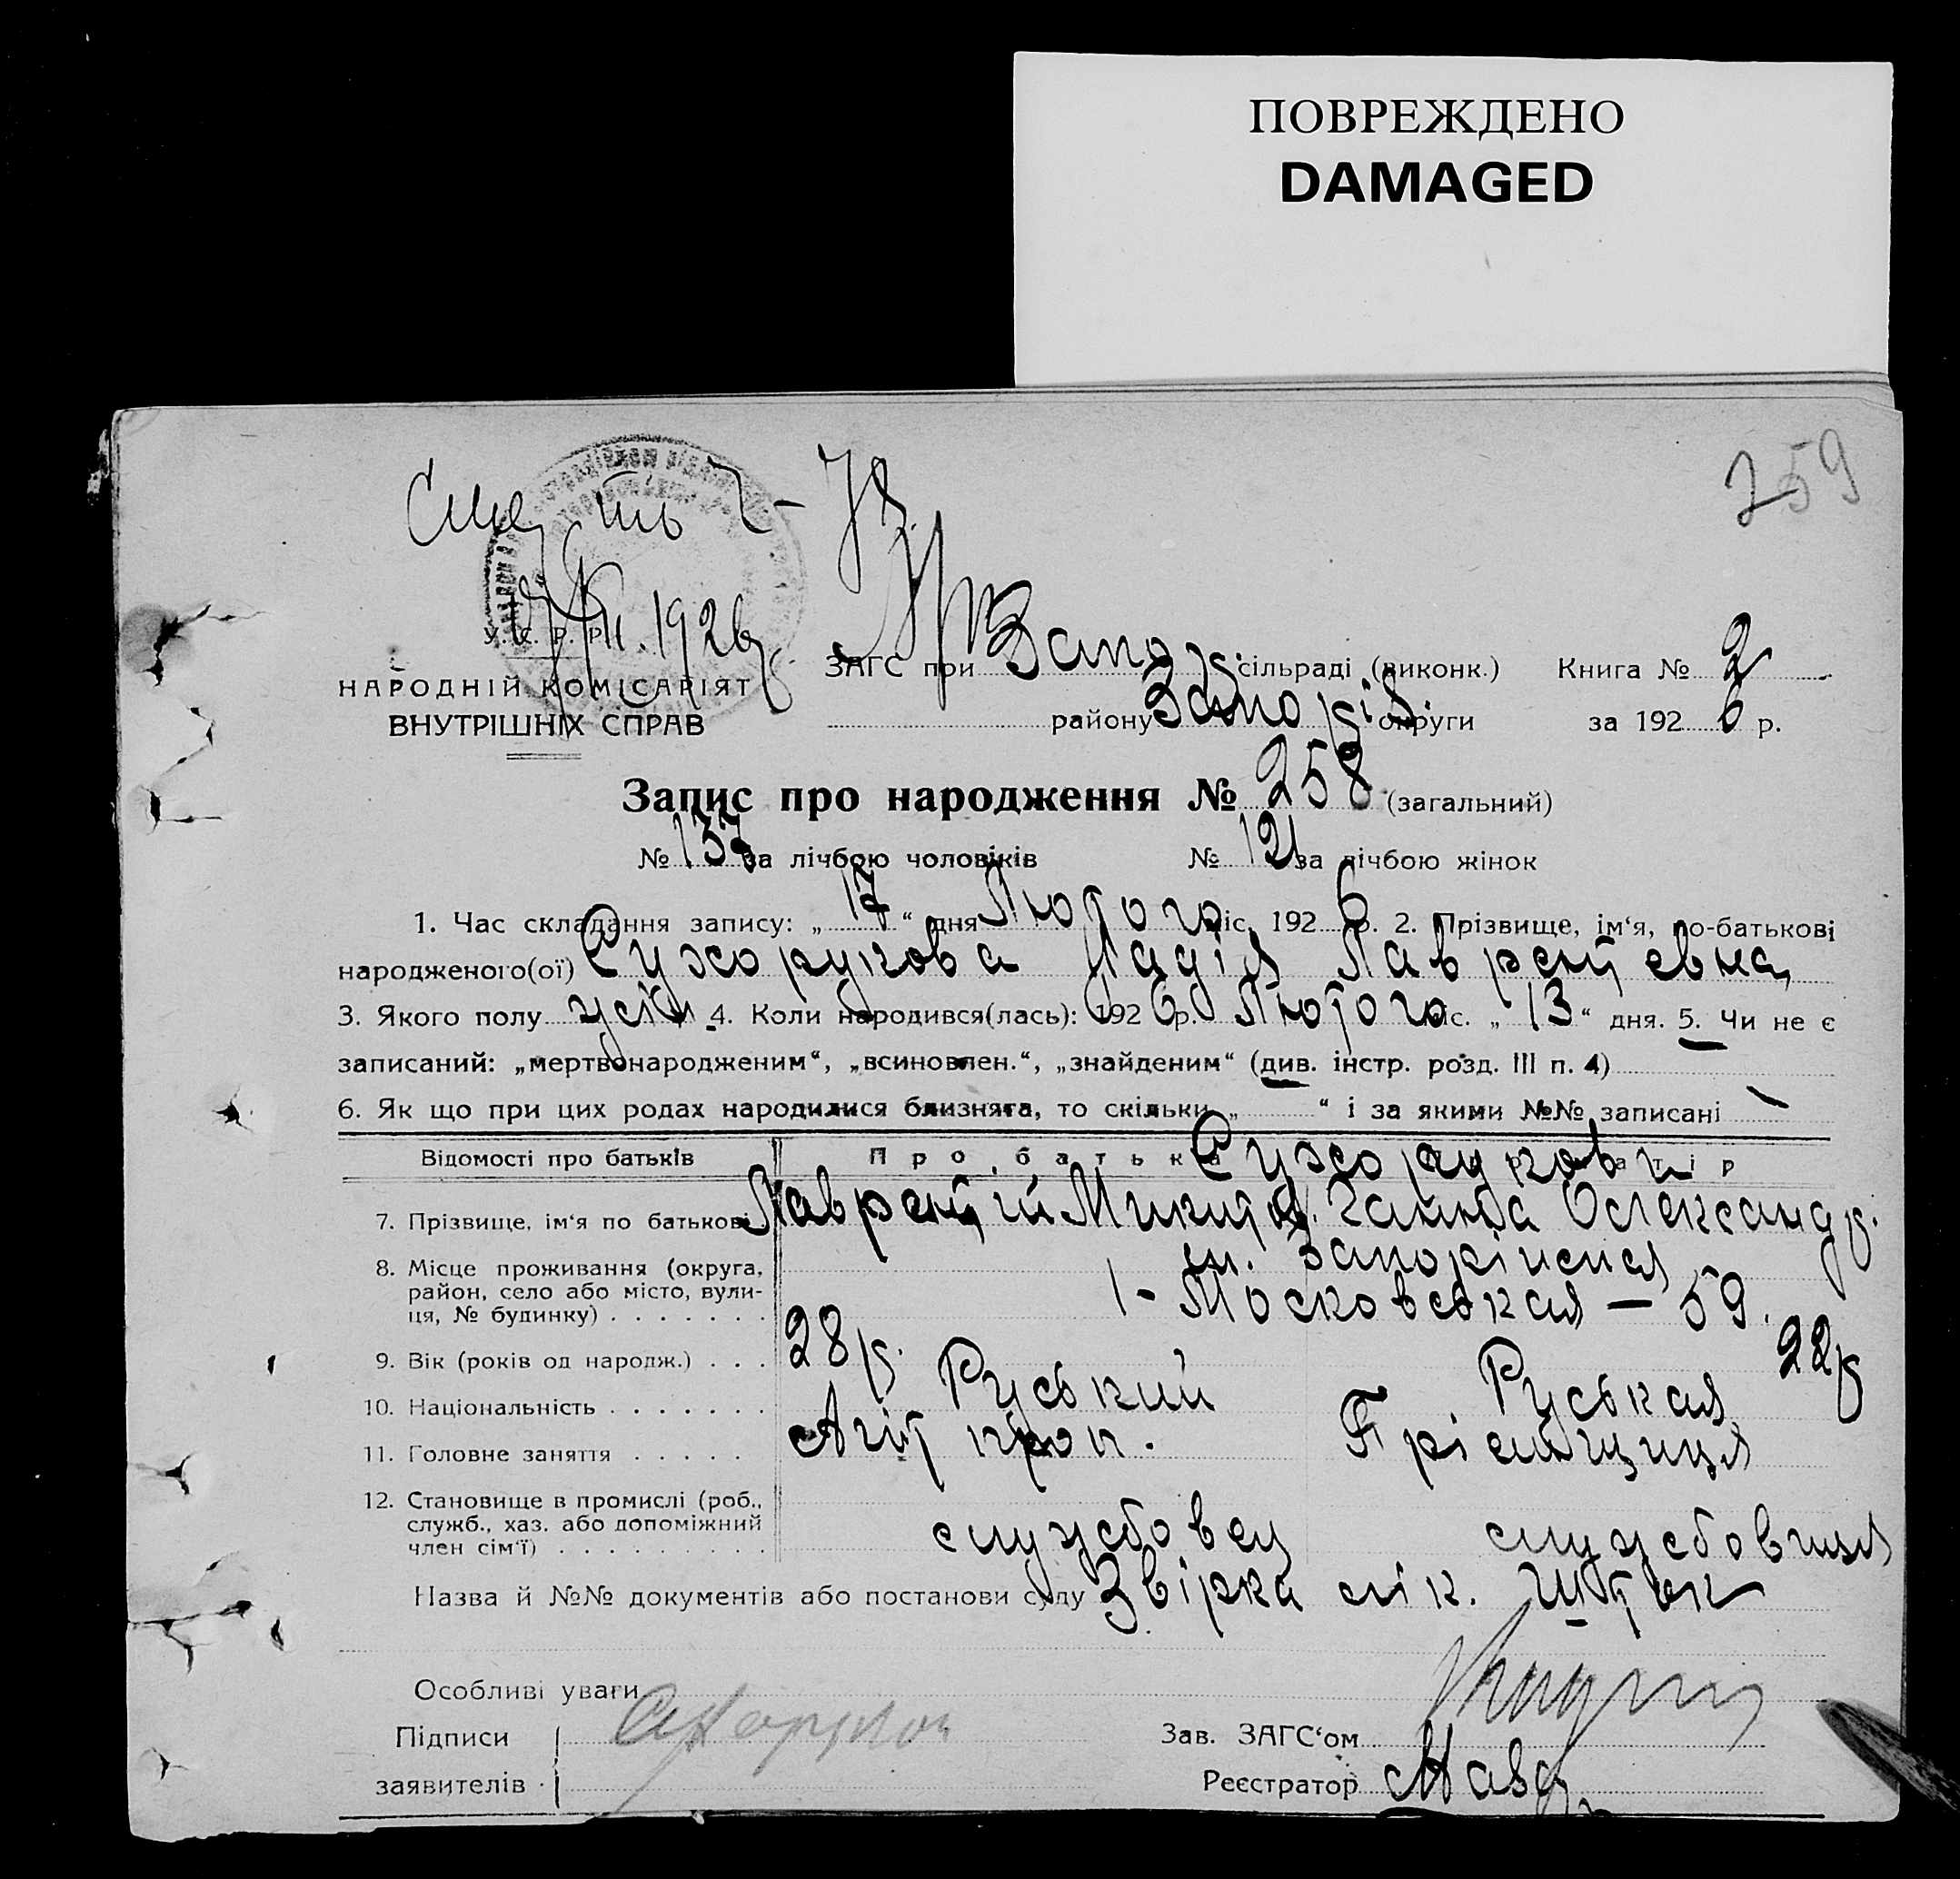 ПОВРЕЖДЕНО
DAMAGED
259
1926
У. С. Р. Р.
НАРОДНІЙ КОМІСАРІЯТ
ВНУТРІШНІХ СПРАВ
ЗАГС при Запор. сільраді (виконк.) Книга № 2
району Запоріз. округи за 1926 р.
Запис про народження № 258 (загальний)
№ 137 за лічбою чоловіків № 121 за лічбою жінок
1. Час складання запису: „17“ дня Лютого міс. 1926 р. 2. Прізвище, ім‘я, по-батькові
народженого(ої) Сухорукова Надія Лаврентевна
3. Якого полу 4. Коли народився(лась): 1926 р. Лютого міс. „13“ дня. 5. Чи не є
записаний: „мертвонародженим“, „всиновлен.“, „знайденим“ (див. інстр. розд. III п. 4)
6. Як що при цих родах народилися близнята, то скільки „ “ і за якими №№ записані
Відомості про батьків Про батька Про матір
Сухорукови
7. Прізвище, ім‘я по батькові Лаврентій Микит. Ганна Олександр.
8. Місце проживання (округа, район, село або місто, вули-
ця, № будинку) . . . . . . .
1-Московськая — 59.
9. Вік (років од народж.) . . . 28 р. 22 р
10. Національність . . . . . . . Руський Руськая
11. Головне заняття . . . . . Агіт проп. Пріємщиця
12. Становище в промислі (роб.,
служб., хаз. або допоміжний
член сім‘ї) . . . . . . . . . службовец службовиця
Назва й №№ документів або постанови суду Звірка лік.
Особливі уваги
Підписи
заявителів
Зав. ЗАГС‘ом
Реєстратор